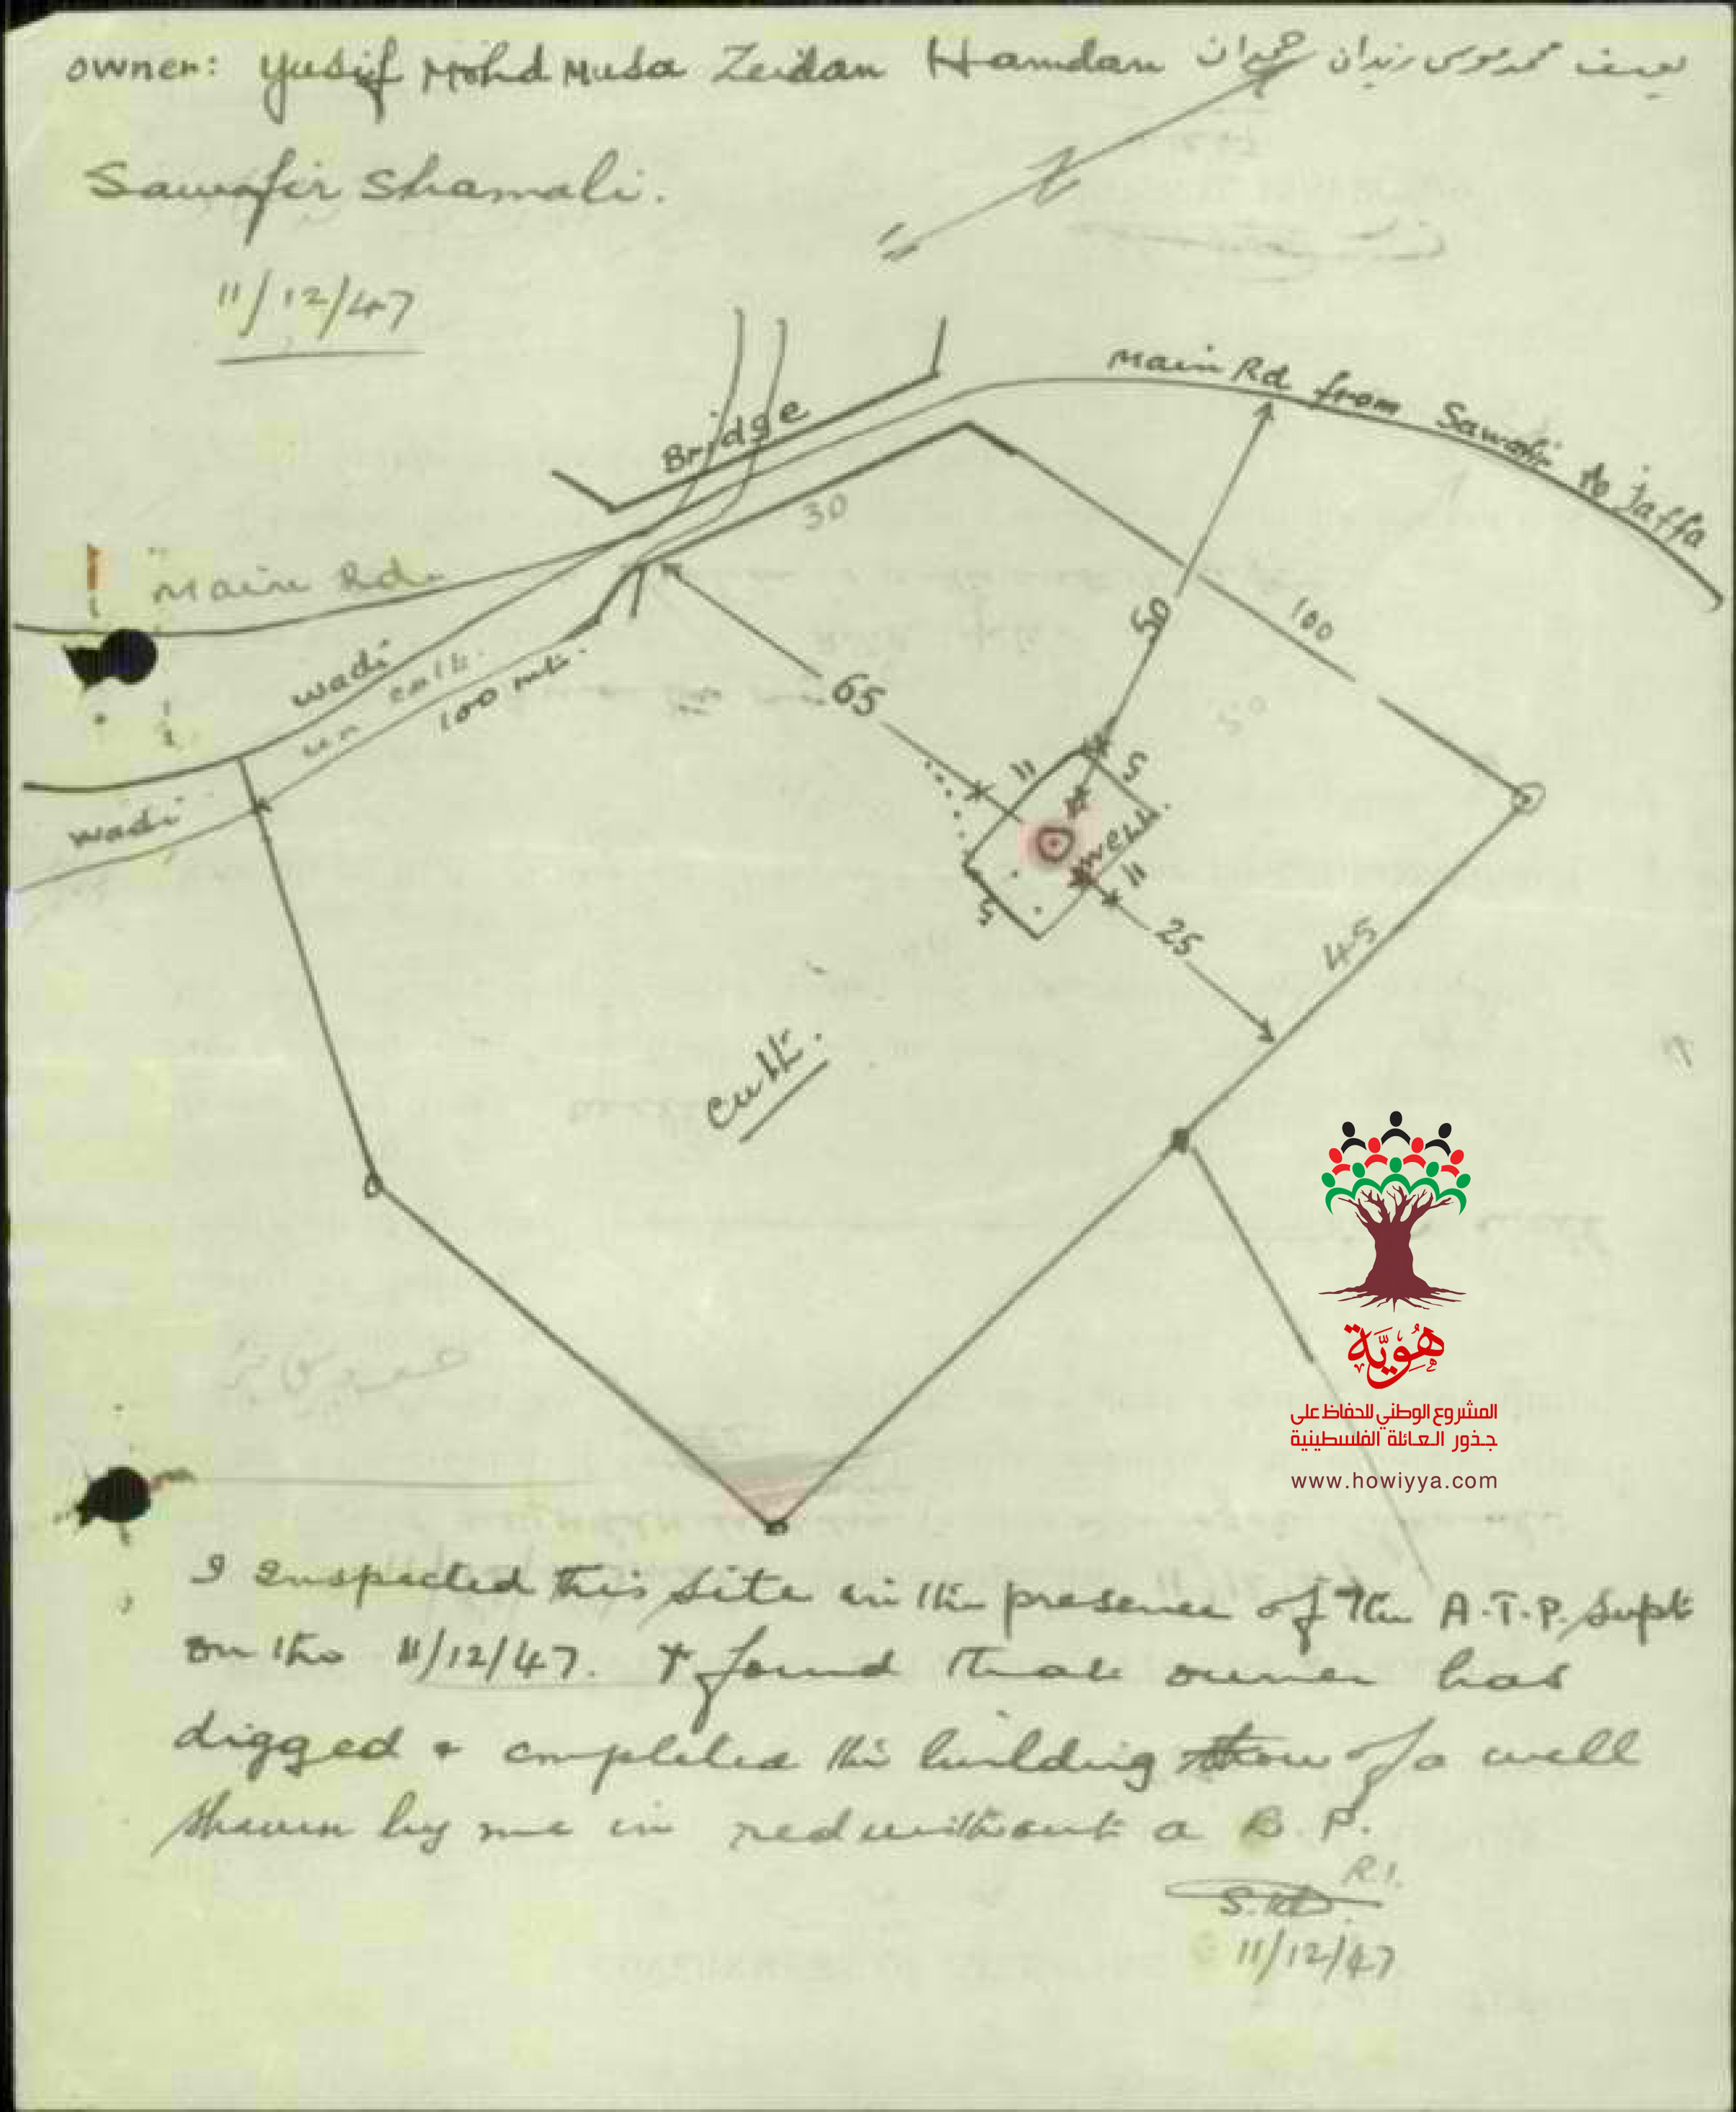 owner: Yusif Mohd Musa Zeidan Hamdan يوسف محمد موسى زيدان حمدان
Sawafir Shamali.
11/12/47
Main Rd from Sawafir to Jaffa
Bridge
30
Main Rd.
wadi
un cult.
100 mt.
wadi
65
50
100
50
11
5
well
11
5
25
45
cult.
هُوِيَّة
المشروع الوطني للحفاظ على
جذور العائلة الفلسطينية
www.howiyya.com
I Inspected this site in the presence of the A.T.P. Supt
on the 11/12/47. & found that owner has
digged & completed the building of a well
shown by me in red without a B.P.
R.I.
11/12/47